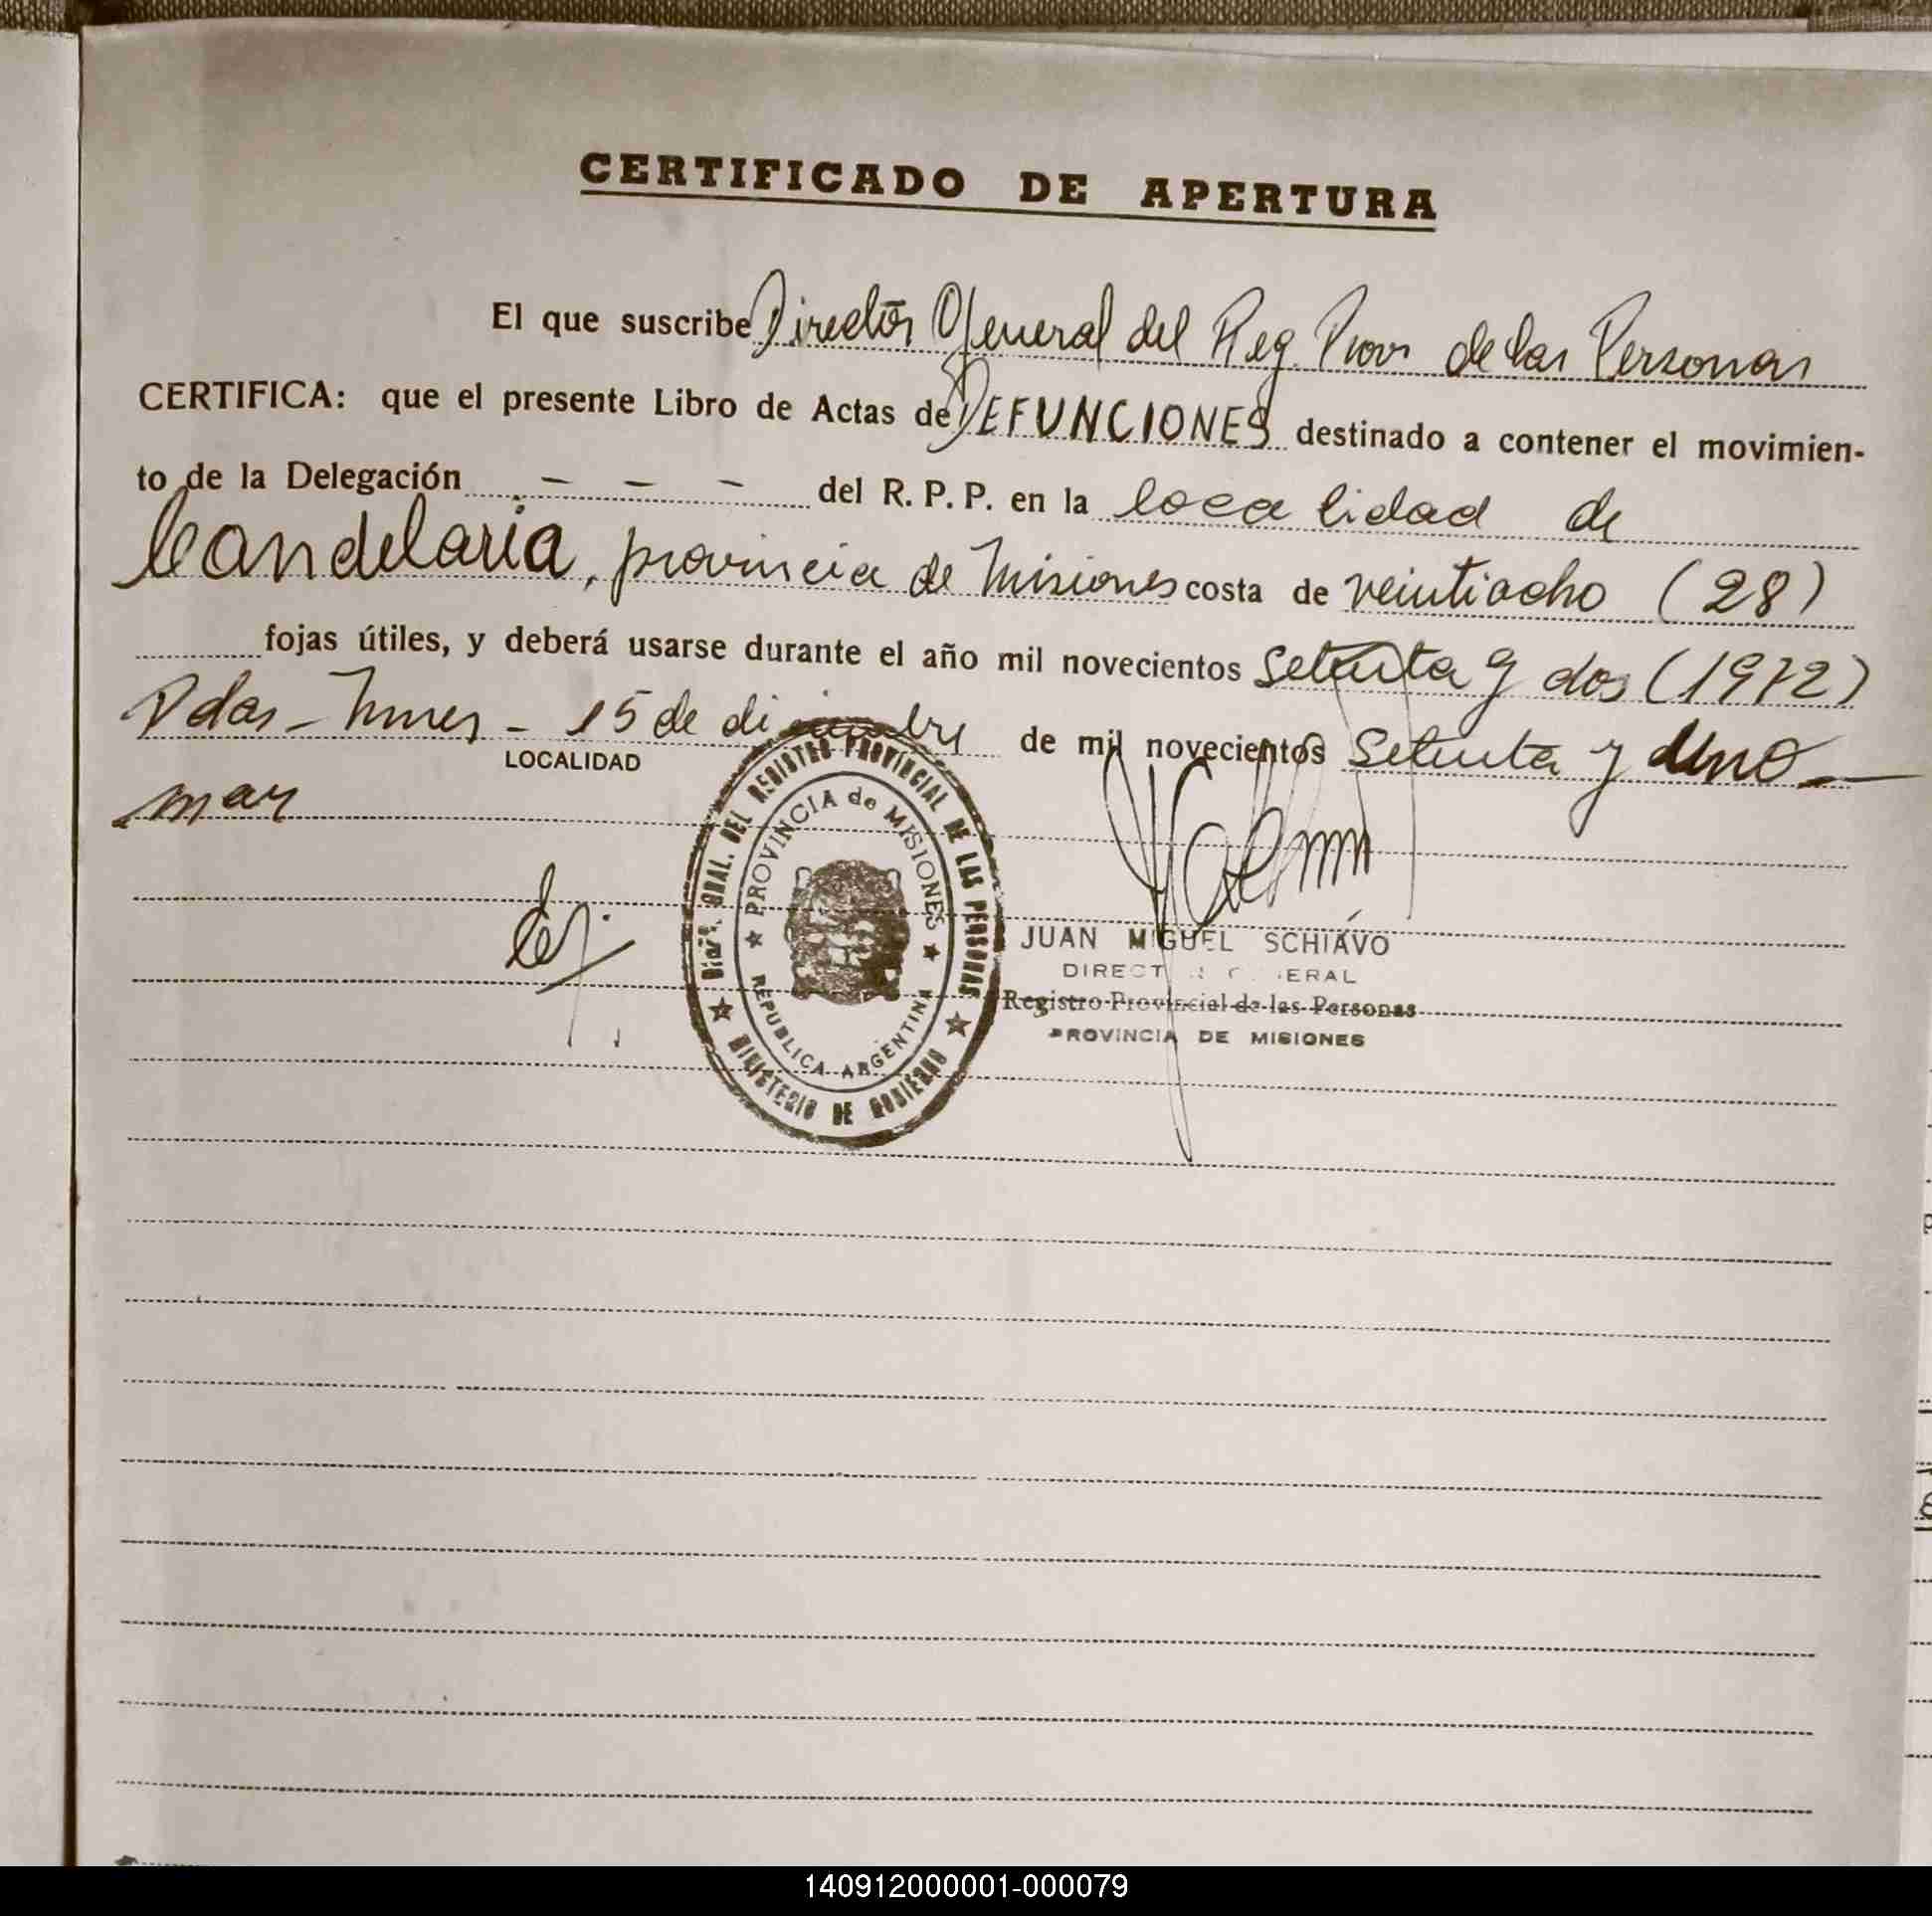 CERTIFICADO DE APERTURA
El que suscribe Director General del Reg. Prov de las Personas
CERTIFICA: que el presente Libro de Actas de DEFUNCIONES destinado a contener el movimien-
to de la Delegación - - - del R. P. P. en la localidad de
Candelaria, provincia de Misiones costa de veintiocho (28)
fojas útiles, y deberá usarse durante el año mil novecientos setenta y dos (1972)
Pdas - Mnes - 15 de diciembre de mil novecientos setenta y uno
LOCALIDAD
DIREC. GRAL. DEL REGISTRO PROVINCIAL DE LAS PERSONAS
PROVINCIA de MISIONES
REPUBLICA ARGENTINA
MINISTERIO DE GOBIERNO
JUAN MIGUEL SCHIAVO
DIRECTOR GENERAL
Registro Provincial de las Personas
PROVINCIA DE MISIONES
140912000001-000079